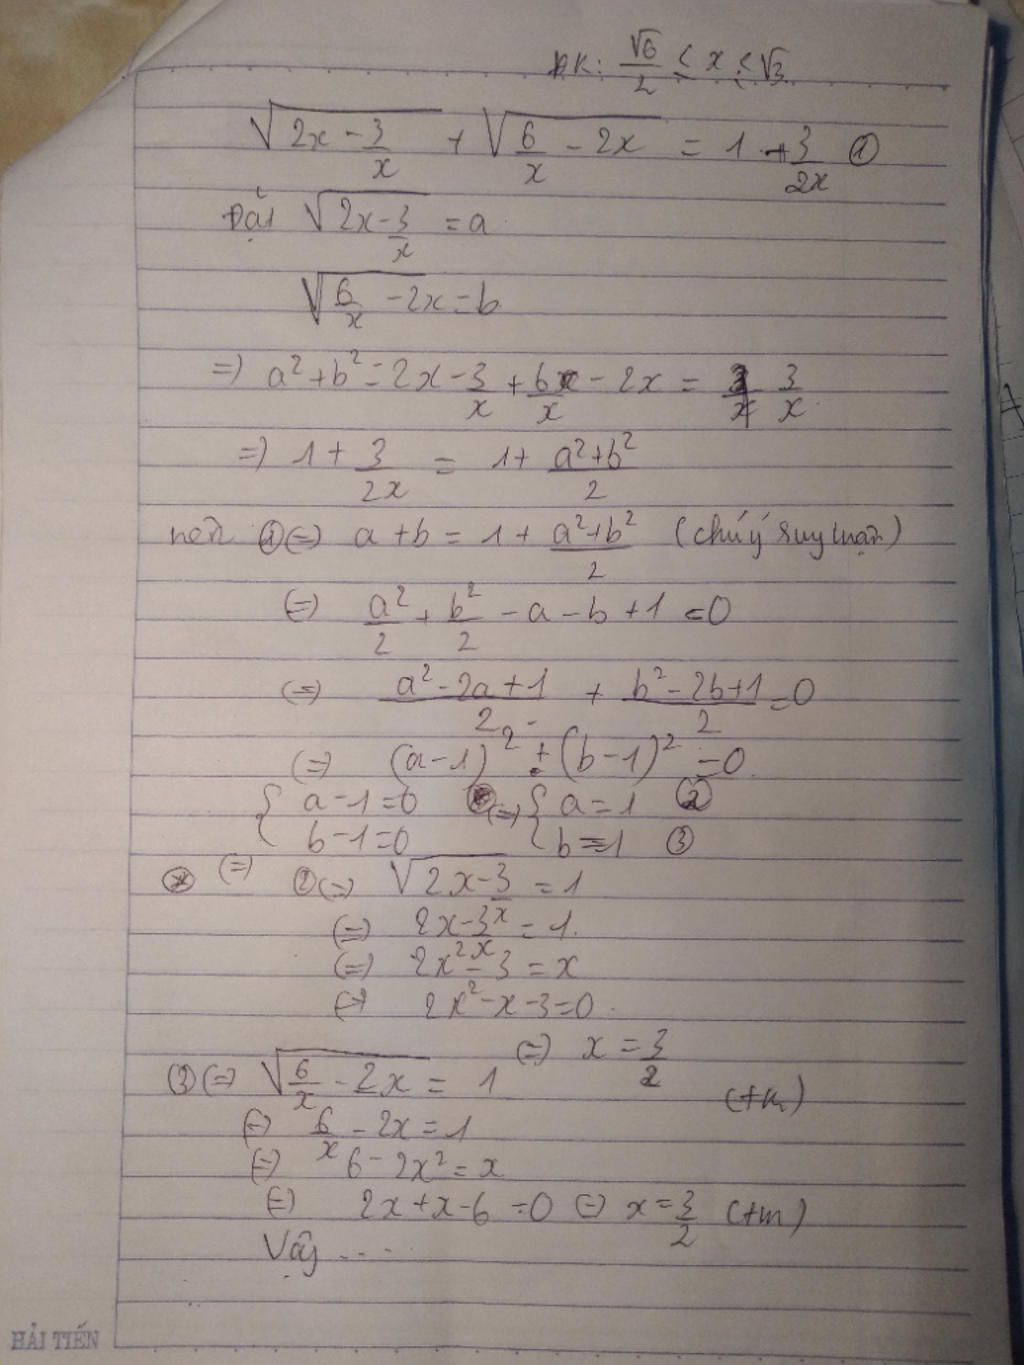 ĐK: √6/2 ≤ x ≤ √3
√(2x - 3/x) + √(6/x - 2x) = 1 + 3/2x ①
Đặt √(2x - 3/x) = a
√(6/x - 2x) = b
=) a² + b² = 2x - 3/x + 6/x - 2x = 3/x
=) 1 + 3/2x = 1 + (a² + b²)/2
nên ① (=) a + b = 1 + (a² + b²)/2 (chú ý suy luận)
(=) a²/2 + b²/2 - a - b + 1 = 0
(=) (a² - 2a + 1)/2 + (b² - 2b + 1)/2 = 0
(=) (a - 1)² + (b - 1)² = 0
{ a - 1 = 0 (=) { a = 1 ②
{ b - 1 = 0 { b = 1 ③
(=) ② (=) √(2x - 3/x) = 1
(=) 2x - 3/x = 1.
(=) 2x² - 3 = x
(=) 2x² - x - 3 = 0.
(=) x = 3/2 (tm)
③ (=) √(6/x - 2x) = 1
(=) 6/x - 2x = 1
(=) 6 - 2x² = x
(=) 2x + x - 6 = 0 (=) x = 3/2 (tm)
Vậy ....
HẢI TIẾN